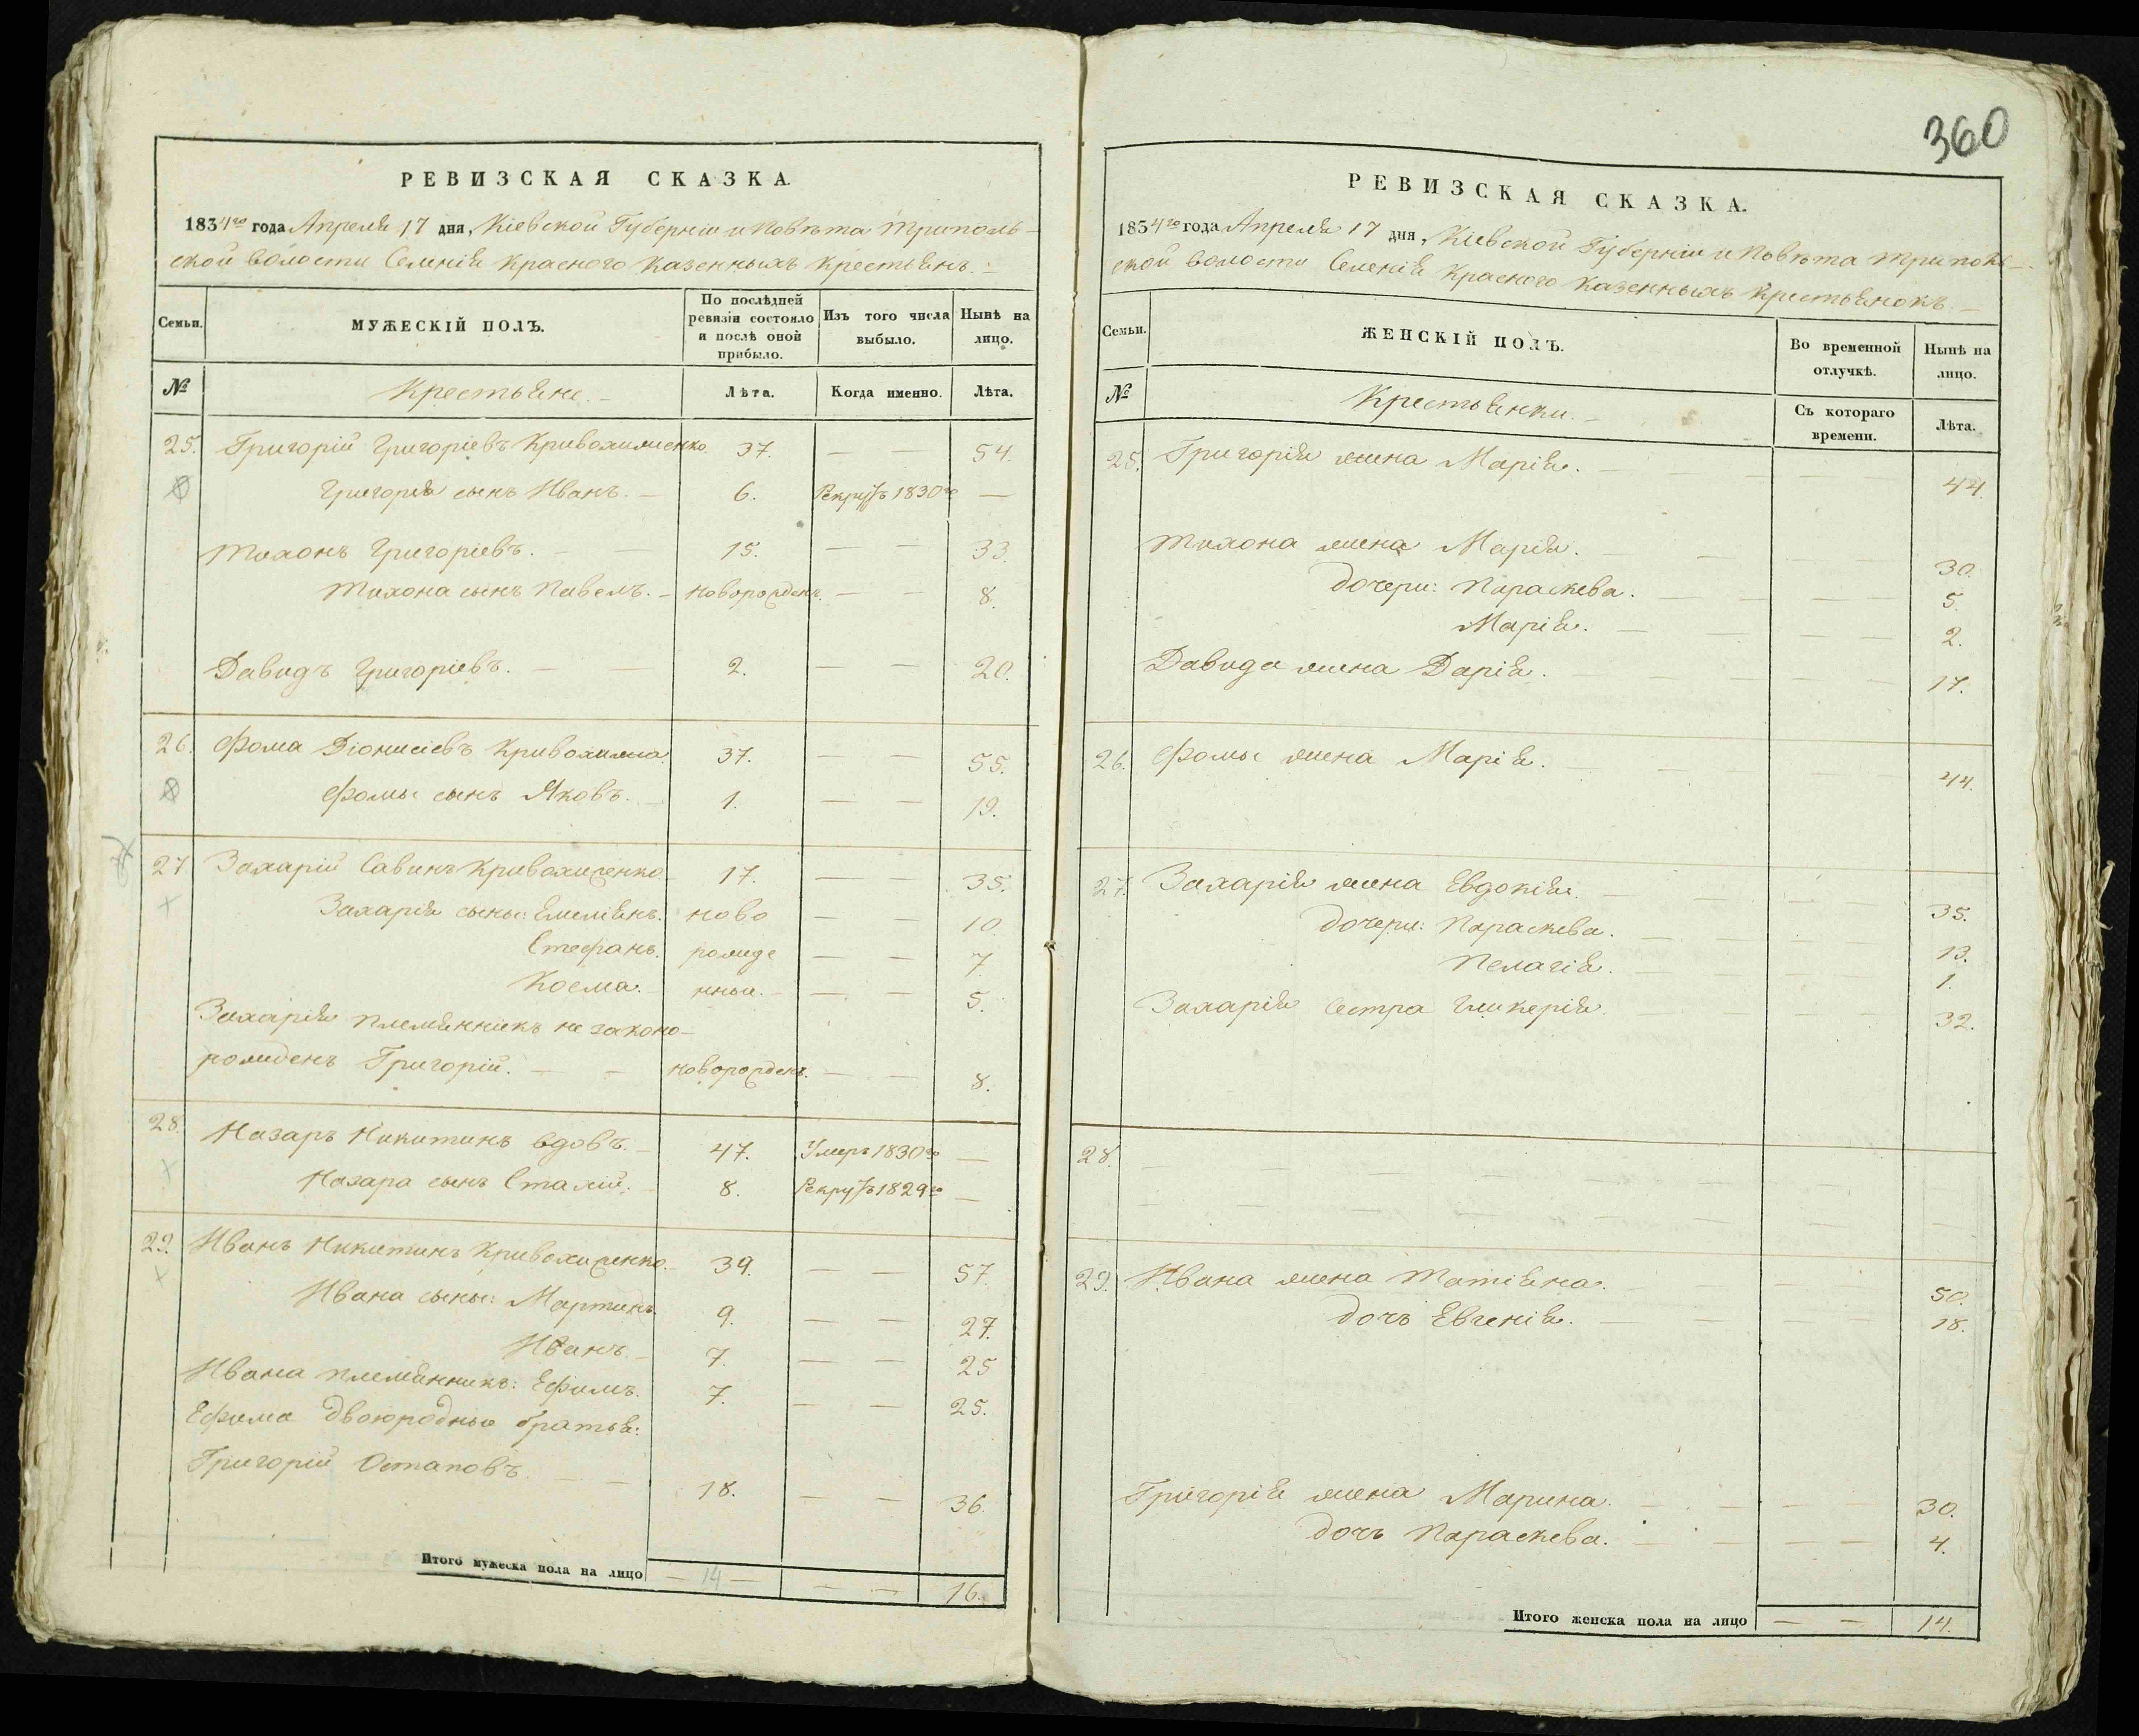 360
РЕВИЗСКАЯ СКАЗКА.
1834го года Апреля 17 дня, Кіевской Губерніи и Повѣта Триполь-
ской волости Селенія Красного казенныхъ крестьянъ.
Семьи.
МУЖЕСКІЙ ПОЛЪ.
По послѣдней ревизіи состояло и послѣ оной прибыло.
Изъ того числа выбыло.
Нынѣ на лицо.
№
Крестьяне.
Лѣта.
Когда именно.
Лѣта.
25. Григорій Григоріевъ 37. — — 54.
Григорія сынъ Иванъ. — 6. Рекрутъ 1830го —
Тихонъ Григоріевъ. — — 15. — — 33.
Тихона сынъ Павелъ. — новорожденъ. — — 8.
Давидъ Григоріевъ. — — 2. — — 20.
26. Фома Діонисіевъ 37. — — 55.
Фомы сынъ Яковъ. — 1. — — 19.
27. Захарій Савинъ 17. — — 35.
Захарія сыны: Емеліянъ. ново — — 10.
Стефанъ. рожде — — 7.
Косма. нные. — — — 5.
Захарія племянникъ не законо-
рожденъ Григорій. — — новорожденъ. — — 8.
28. Назаръ Никитинъ вдовъ. — 47. Умеръ 1830го —
Назара сынъ 8. Рекрутъ 1829го —
29. Иванъ Никитинъ 39. — — 57.
Ивана сыны: Мартинъ. 9. — — 27.
Иванъ. — 7. — — 25
Ивана племянникъ: Ефимъ. 7. — — 25.
Ефима двоюродные братья:
Григорій Остаповъ. — — 18. — — 36.
Итого мужеска пола на лицо — 14 — — — 16.
РЕВИЗСКАЯ СКАЗКА.
1834го года Апреля 17 дня, Кіевской Губерніи и Повѣта Триполь-
ской волости Селенія Красного казенныхъ крестьянокъ. —
Семьи.
ЖЕНСКІЙ ПОЛЪ.
Во временной отлучкѣ.
Нынѣ на лицо.
№
Крестьянки. —
Съ котораго времени.
Лѣта.
25. Григорія жена Марія. — — — — 44.
Тихона жена Марія. — — — — 30.
дочери: Параскева. — — — — 5.
Марія. — — — — 2.
Давида жена Дарія. — — — — 17.
26. Фомы жена Марія. — — — — 44.
27. Захарія жена Евдокія. — — — — 35.
дочери: Параскева. — — — — 13.
Пелагія. — — — — 1.
Захарія сестра Гликерія. — — — — 32.
28. — — — — — — —
— — — — — — — —
29. Ивана жена Татіяна. — — — — 50.
дочь Евгенія. — — — — 18.
Григорія жена Марина. — — — — 30.
дочь Параскева. — — — — 4.
Итого женска пола на лицо — — 14.